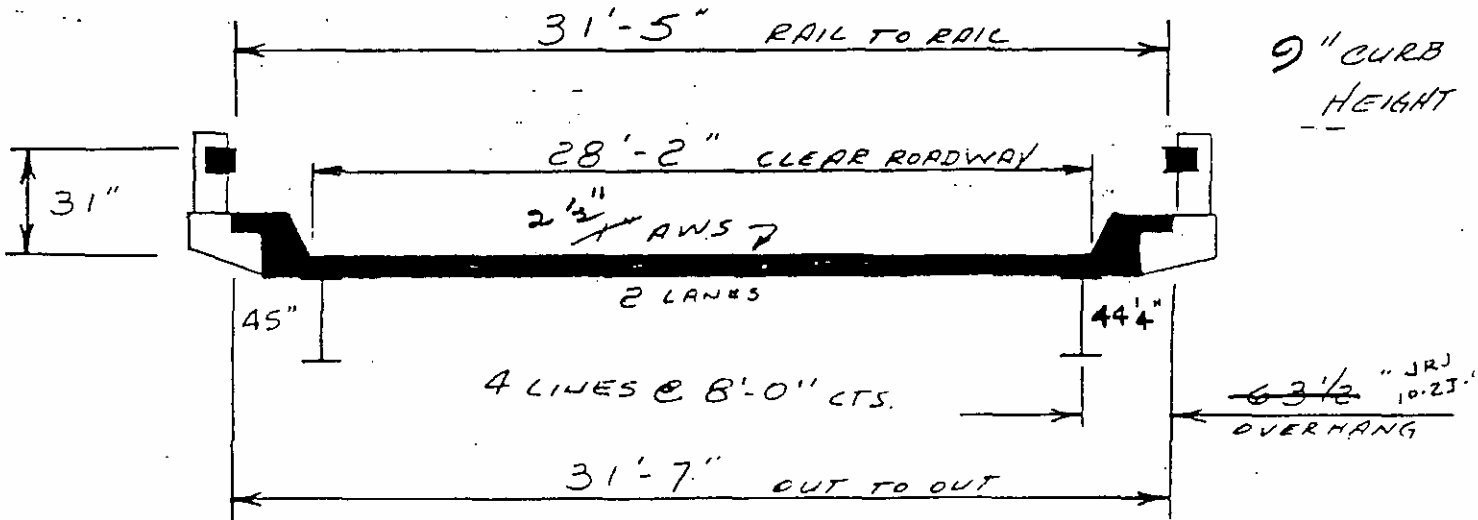 31'-5" RAIL TO RAIL
9" CURB
HEIGHT
28'-2" CLEAR ROADWAY
31"
2 1/2" AWS
2 LANES
45"
44 1/4"
4 LINES @ 8'-0" CTS.
63 1/2" JRJ
OVERHANG
31'-7" OUT TO OUT